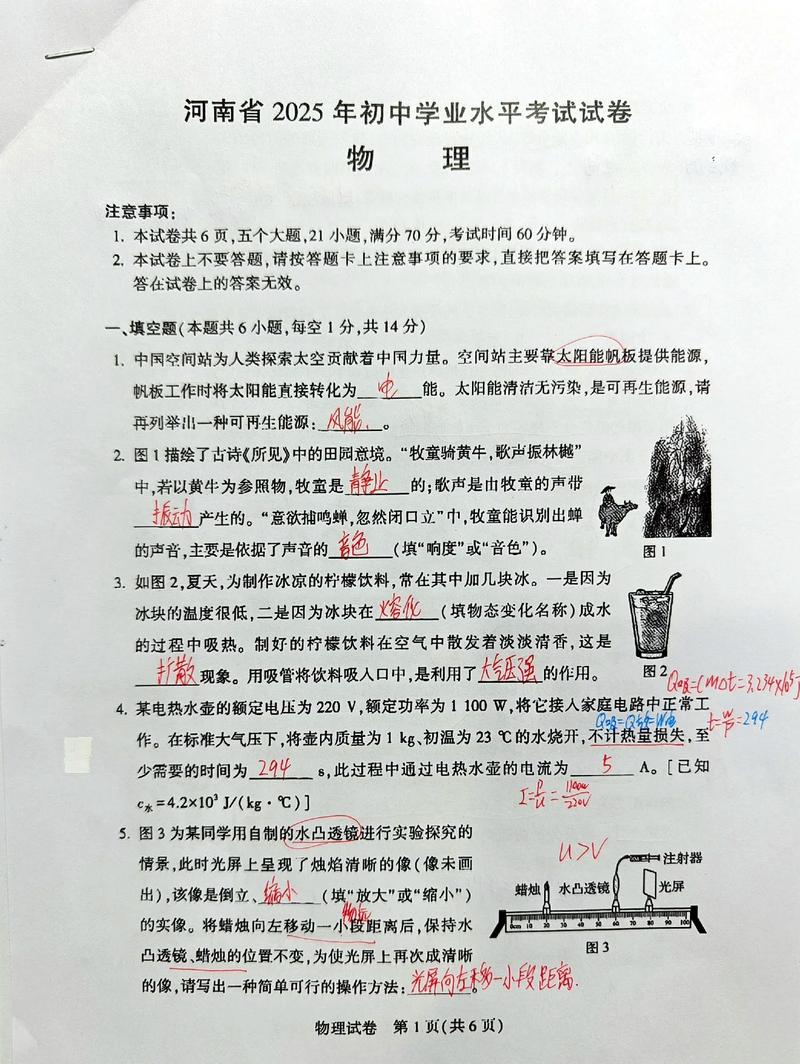 河南省 2025 年初中学业水平考试试卷
物 理
注意事项：
1. 本试卷共 6 页，五个大题，21 小题，满分 70 分，考试时间 60 分钟。
2. 本试卷上不要答题，请按答题卡上注意事项的要求，直接把答案填写在答题卡上。
答在试卷上的答案无效。
一、填空题（本题共 6 小题，每空 1 分，共 14 分）
1. 中国空间站为人类探索太空贡献着中国力量。空间站主要靠太阳能帆板提供能源，
帆板工作时将太阳能直接转化为 电 能。太阳能清洁无污染，是可再生能源，请
再列举出一种可再生能源：风能、。
2. 图 1 描绘了古诗《所见》中的田园意境。“牧童骑黄牛，歌声振林樾”
中，若以黄牛为参照物，牧童是 静止 的；歌声是由牧童的声带
振动 产生的。“意欲捕鸣蝉，忽然闭口立”中，牧童能识别出蝉
的声音，主要是依据了声音的 音色 （填“响度”或“音色”）。
图 1
3. 如图 2，夏天，为制作冰凉的柠檬饮料，常在其中加几块冰。一是因为
冰块的温度很低，二是因为冰块在 熔化 （填物态变化名称）成水
的过程中吸热。制好的柠檬饮料在空气中散发着淡淡清香，这是
扩散 现象。用吸管将饮料吸入口中，是利用了 大气压强 的作用。
图 2
Q吸=CmΔt=3.234×10⁵J
4. 某电热水壶的额定电压为 220 V，额定功率为 1 100 W，将它接入家庭电路中正常工
Q吸=Q放=W电
t=W/P=294
作。在标准大气压下，将壶内质量为 1 kg、初温为 23 ℃的水烧开，不计热量损失，至
少需要的时间为 294 s，此过程中通过电热水壶的电流为 5 A。[已知
c水=4.2×10³ J/(kg·℃)]
I=P/U=1100W/220V
5. 图 3 为某同学用自制的水凸透镜进行实验探究的
情景，此时光屏上呈现了烛焰清晰的像（像未画
出），该像是倒立、缩小 （填“放大”或“缩小”）
物远
的实像。将蜡烛向左移动一小段距离后，保持水
凸透镜、蜡烛的位置不变，为使光屏上再次成清晰
的像，请写出一种简单可行的操作方法：光屏向左移一小段距离.。
u>v
注射器
蜡烛 水凸透镜 光屏
0cm 10 20 30 40 50 60 70 80 90 100
图 3
物理试卷 第 1 页（共 6 页）